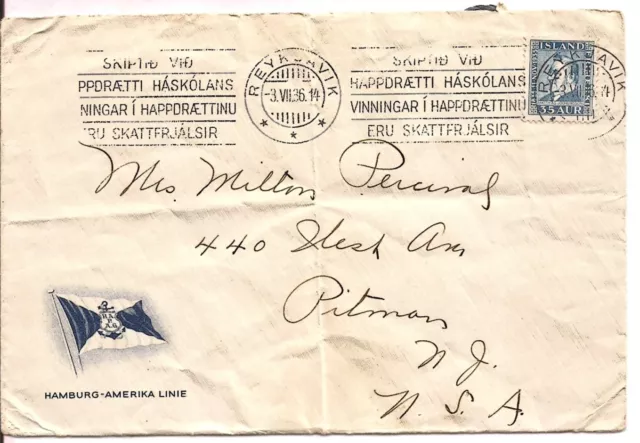 SKIPTIÐ VIÐ
PPDRÆTTI HÁSKÓLANS
NINGAR Í HAPPDRÆTTINU
ERU SKATTFRJÁLSIR
REYKJAVIK
-3.VII.36.14
SKIPTIÐ VIÐ
HAPPDRÆTTI HÁSKÓLANS
VINNINGAR Í HAPPDRÆTTINU
ERU SKATTFRJÁLSIR
ÍSLAND
35 AUR
REYKJAVIK
Mrs. Milton Percival
440 West Ave
Pitman
N. J.
U. S. A.
HAMBURG-AMERIKA LINIE